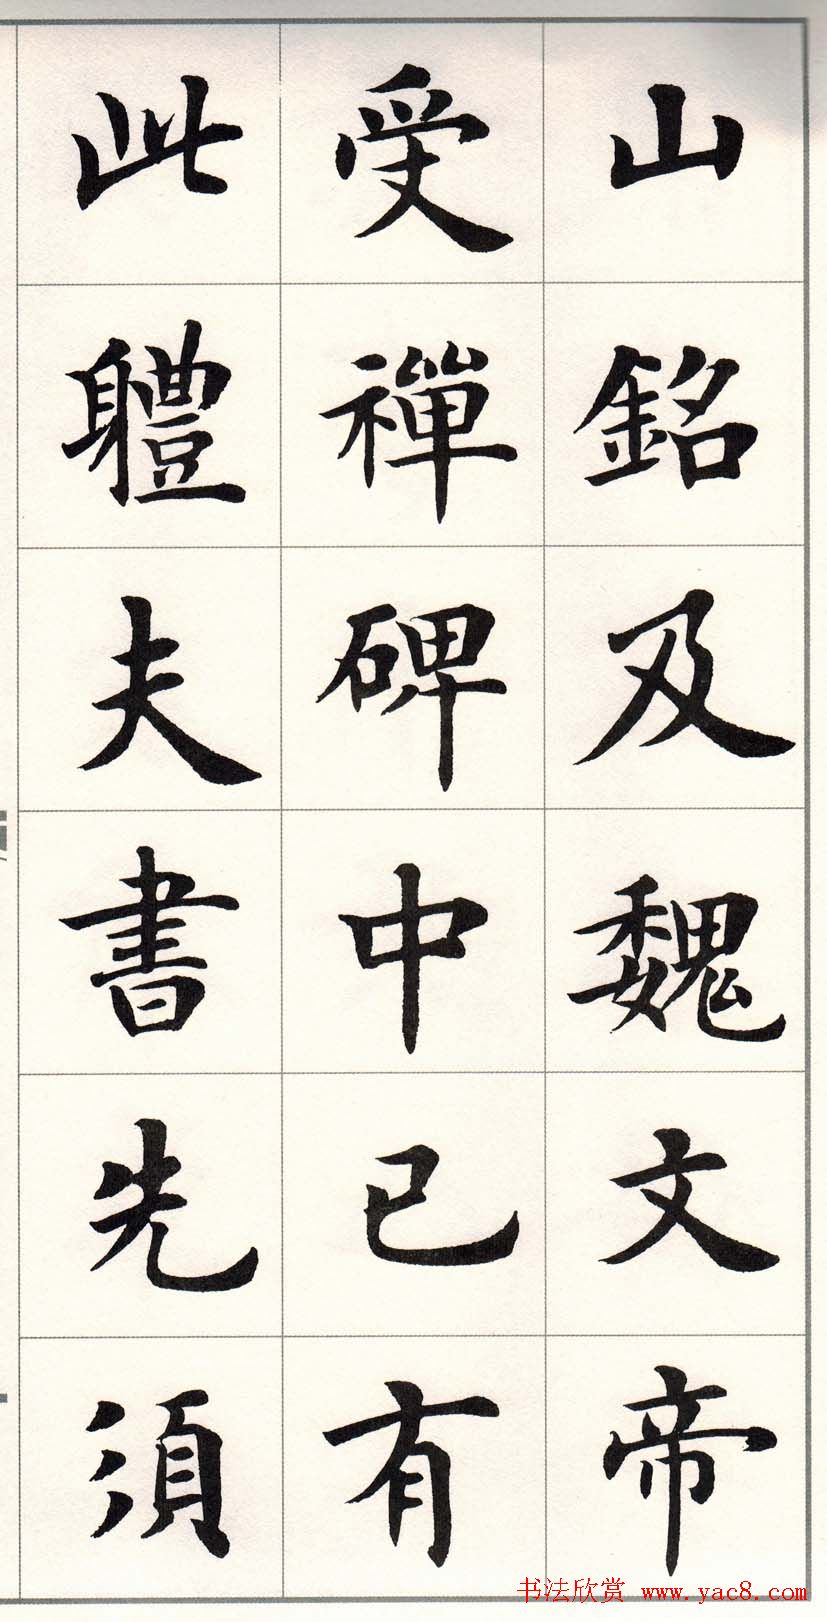 山銘及魏文帝
受禪碑中已有
此軆夫書先須
书法欣赏 www.yac8.com